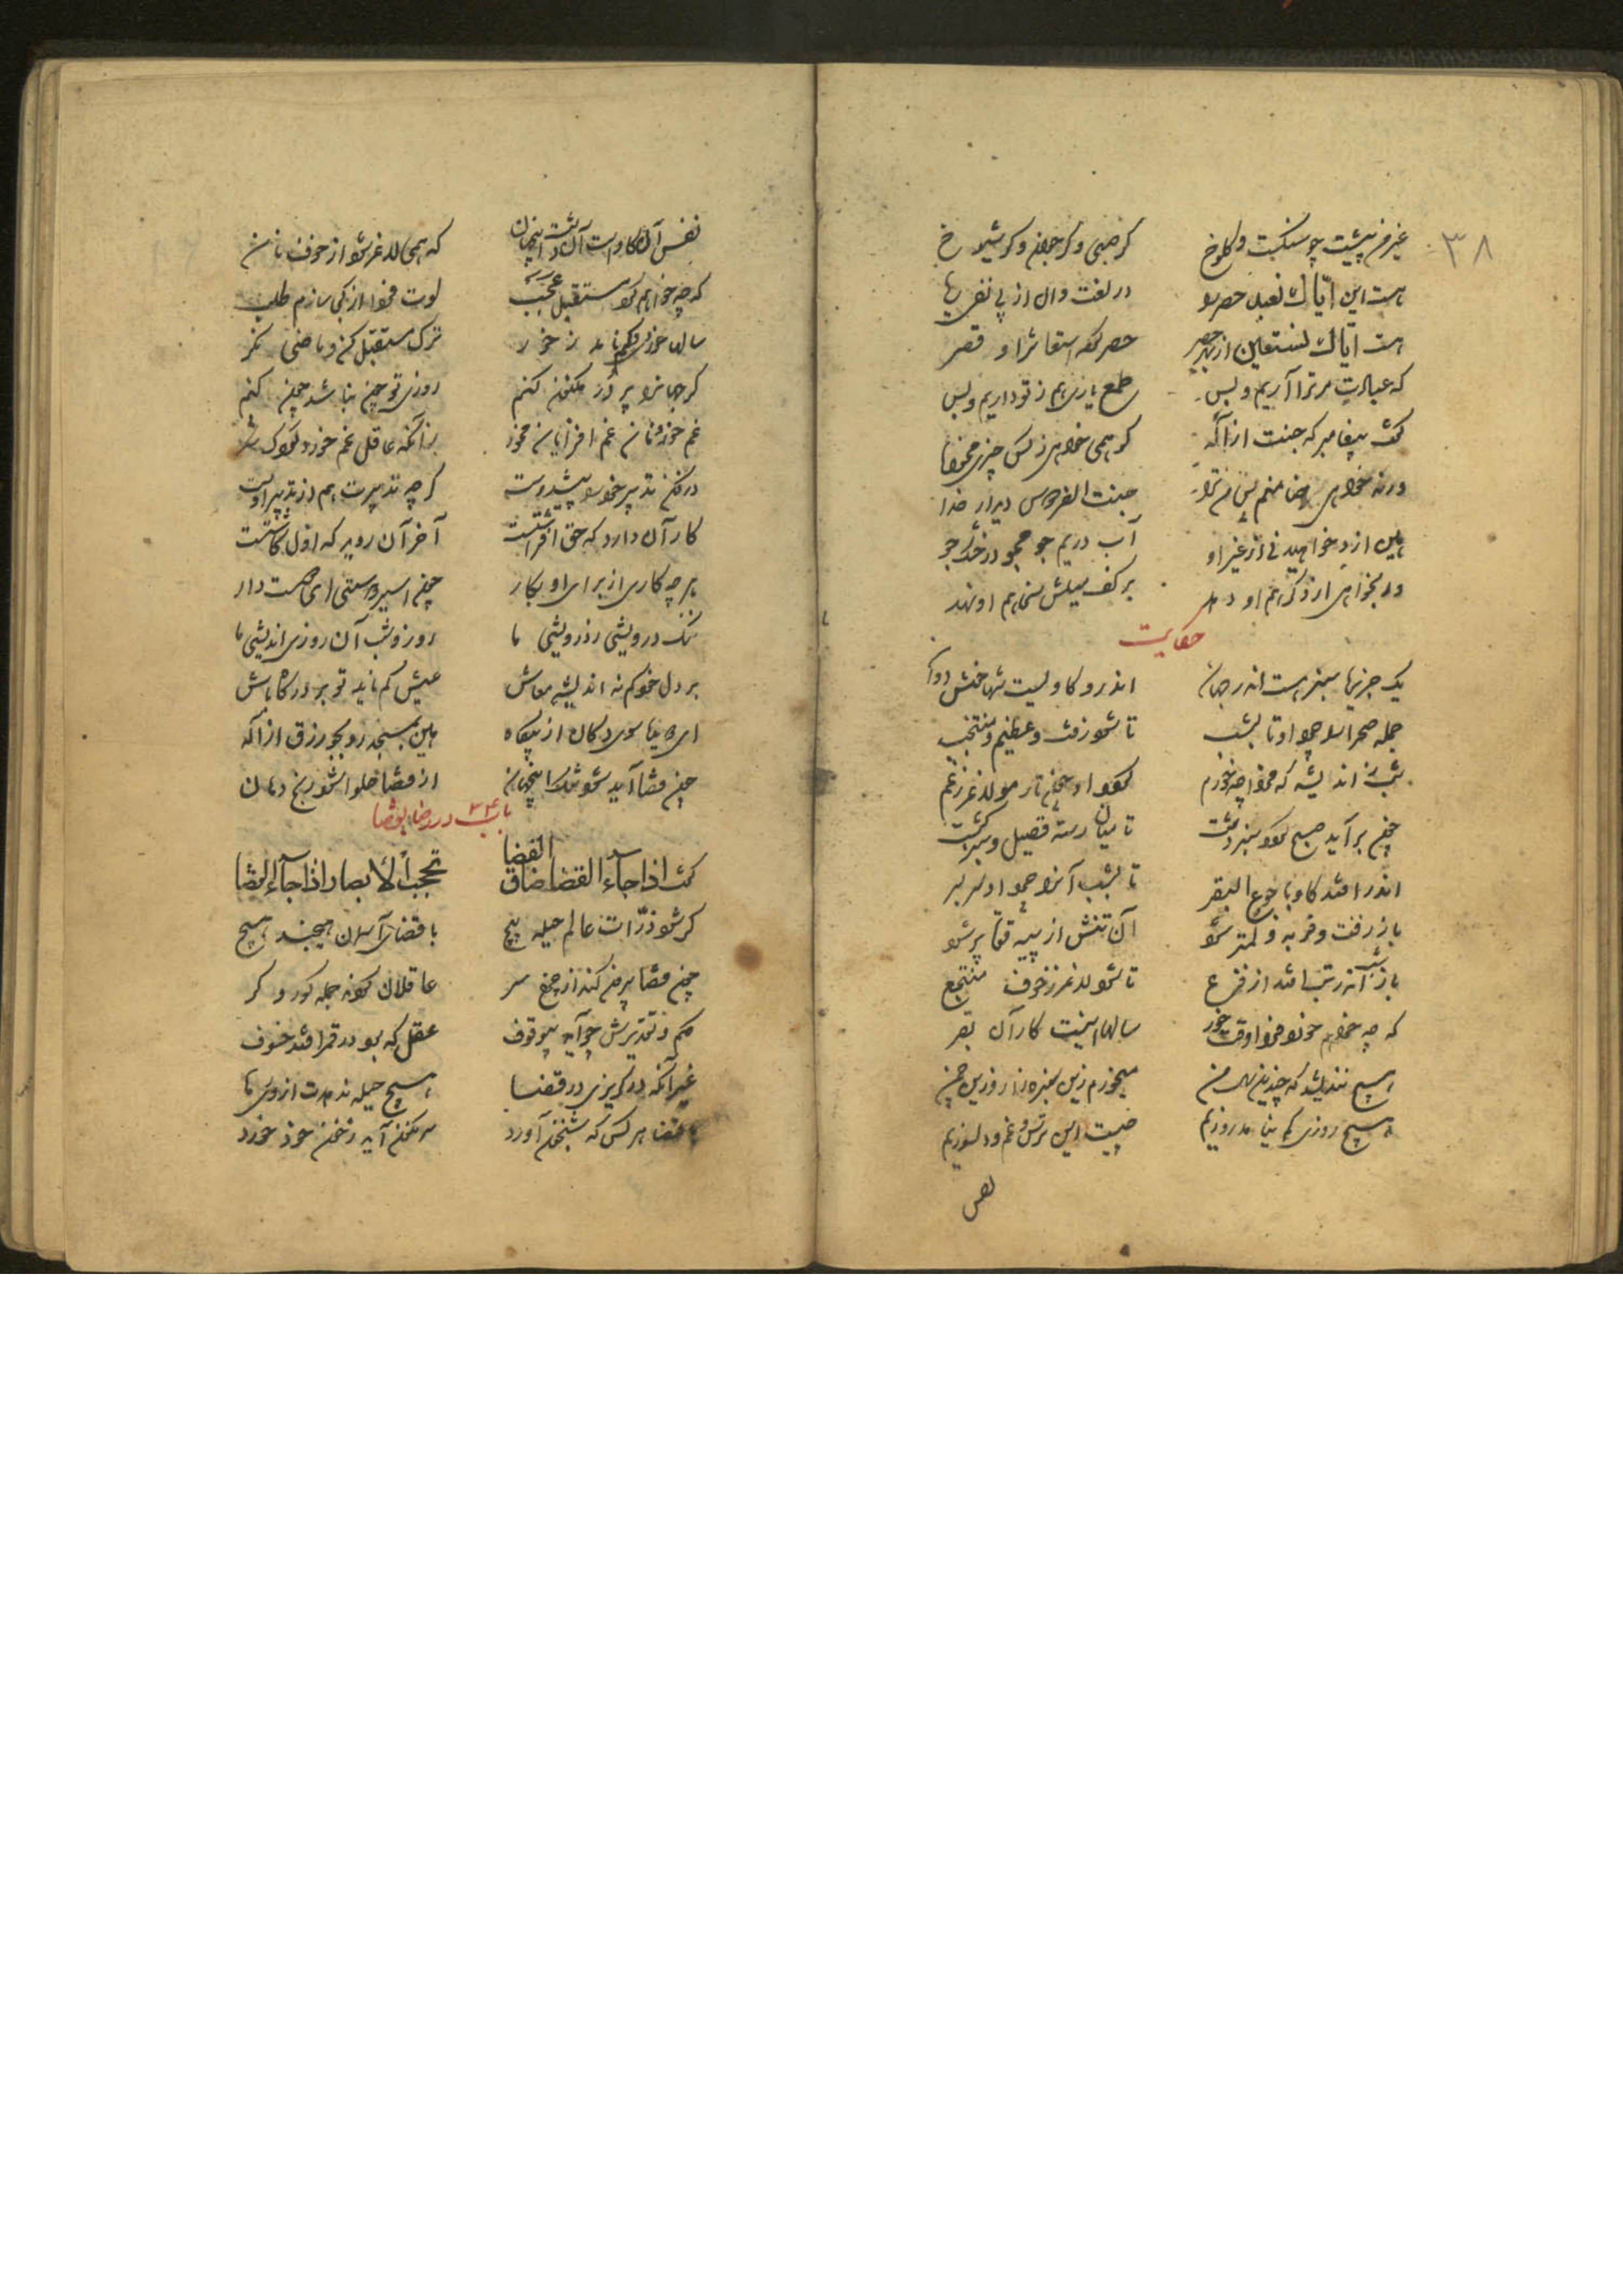 ۳۸
غیر من پیشت چو سنگست و کلوخ گر صبی و گر جوان و گر شیوخ
هست این ایاک نعبد حصر را در لغت وان از پی نفی ریا
هست ایاک نستعین از بهر حصر حصر کرده استعانت را و قصر
که عبادت مر ترا آریم و بس طمع یاری هم ز تو داریم و بس
گفت پیغامبر که جنت از اله گر همی خواهی ز کس چیزی مخواه
ور نخواهی ضامنم پس من ترا جنت الفردوس دیدار خدا
هین ازو خواهید نی از غیر او آب در یم جو مجو در خشک جو
ور بخواهی از دگر هم او دهد بر کف میلش سخا هم او نهد
حکایت
یک جزیره سبز هست اندر جهان اندرو گاویست تنها خوش دهان
جمله صحرا را چرد او تا بشب تا شود زفت و عظیم و منتجب
شب ز اندیشه که فردا چه خورم گردد او چون تار مو لاغر ز غم
چون برآید صبح گردد سبز دشت تا میان رسته قصیل و سبز کشت
اندر افتد گاو با جوع البقر تا بشب آنرا چرد او سر بسر
باز زفت و فربه و لمتر شود آن تنش از پیه و قوت پر شود
باز شب اندر تب افتد از فزع تا شود لاغر ز خوف منتجع
که چه خواهم خورد فردا وقت خور سالها اینست کار آن بقر
هیچ نندیشد که چندین سال من میخورم زین سبزه زار و زین چمن
هیچ روزی کم نیامد روزیم چیست این ترس و غم و دلسوزیم
نفس
نفس آن گاوست آن دشت اینجهان که همی لاغر شود از خوف نان
که چه خواهم خورد مستقبل عجب لوت فردا از کجا سازم طلب
سالها خوردی و کم نامد ز خور ترک مستقبل کن و ماضی نگر
گر جهانرا پر در مکنون کنم روزی تو چون نباشد چون کنم
غم خور و نان غم افزایان مخور زانکه عاقل غم خورد کودک شکر
در فکن تدبیر خود را پیش دوست گرچه تدبیرت هم از تدبیر اوست
کار آن دارد که حق افراشتست آخر آن روید که اول کاشتست
هر چه کاری از برای او بکار چون اسیر دوستی ای دوست دار
ننگ درویشی ز درویشی ما روز و شب آن روزی اندیشی ما
بر دل خود کم نه اندیشه معاش عیش کم ناید تو بر درگاه باش
ای دویده سوی دکان از پگاه هین بمسجد رو بجو رزق از اله
چون قضا آید شود تنگ اینجهان از قضا حلوا شود رنج دهان
باب ۲۴ در رضا بقضا
گفت اذا جاء القضا ضاق الفضا تحجب الابصار اذا جاء القضا
گر شود ذرات عالم حیله پیچ با قضای آسمان هیچند هیچ
چون قضا بیرون کند از چرخ سر عاقلان گردند جمله کور و کر
حکم و تقدیرش چو آید بی وقوف عقل که بود در قمر افتد خسوف
غیر آنکه در گریزی در قضا هیچ حیله ندهدت از وی رها
با قضا هر کس که شبیخون آورد سرنگون آید ز خون خود خورد